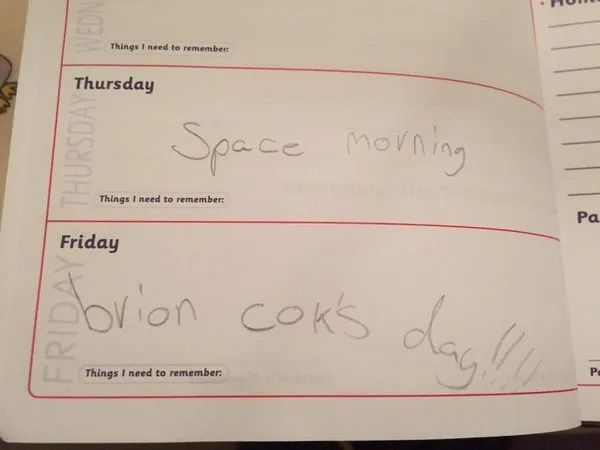 WEDN
Things I need to remember:
Thursday
THURSDAY
Space morning
Things I need to remember:
Friday
FRIDAY
brion cok's day!!!!
Things I need to remember:
Pa
P